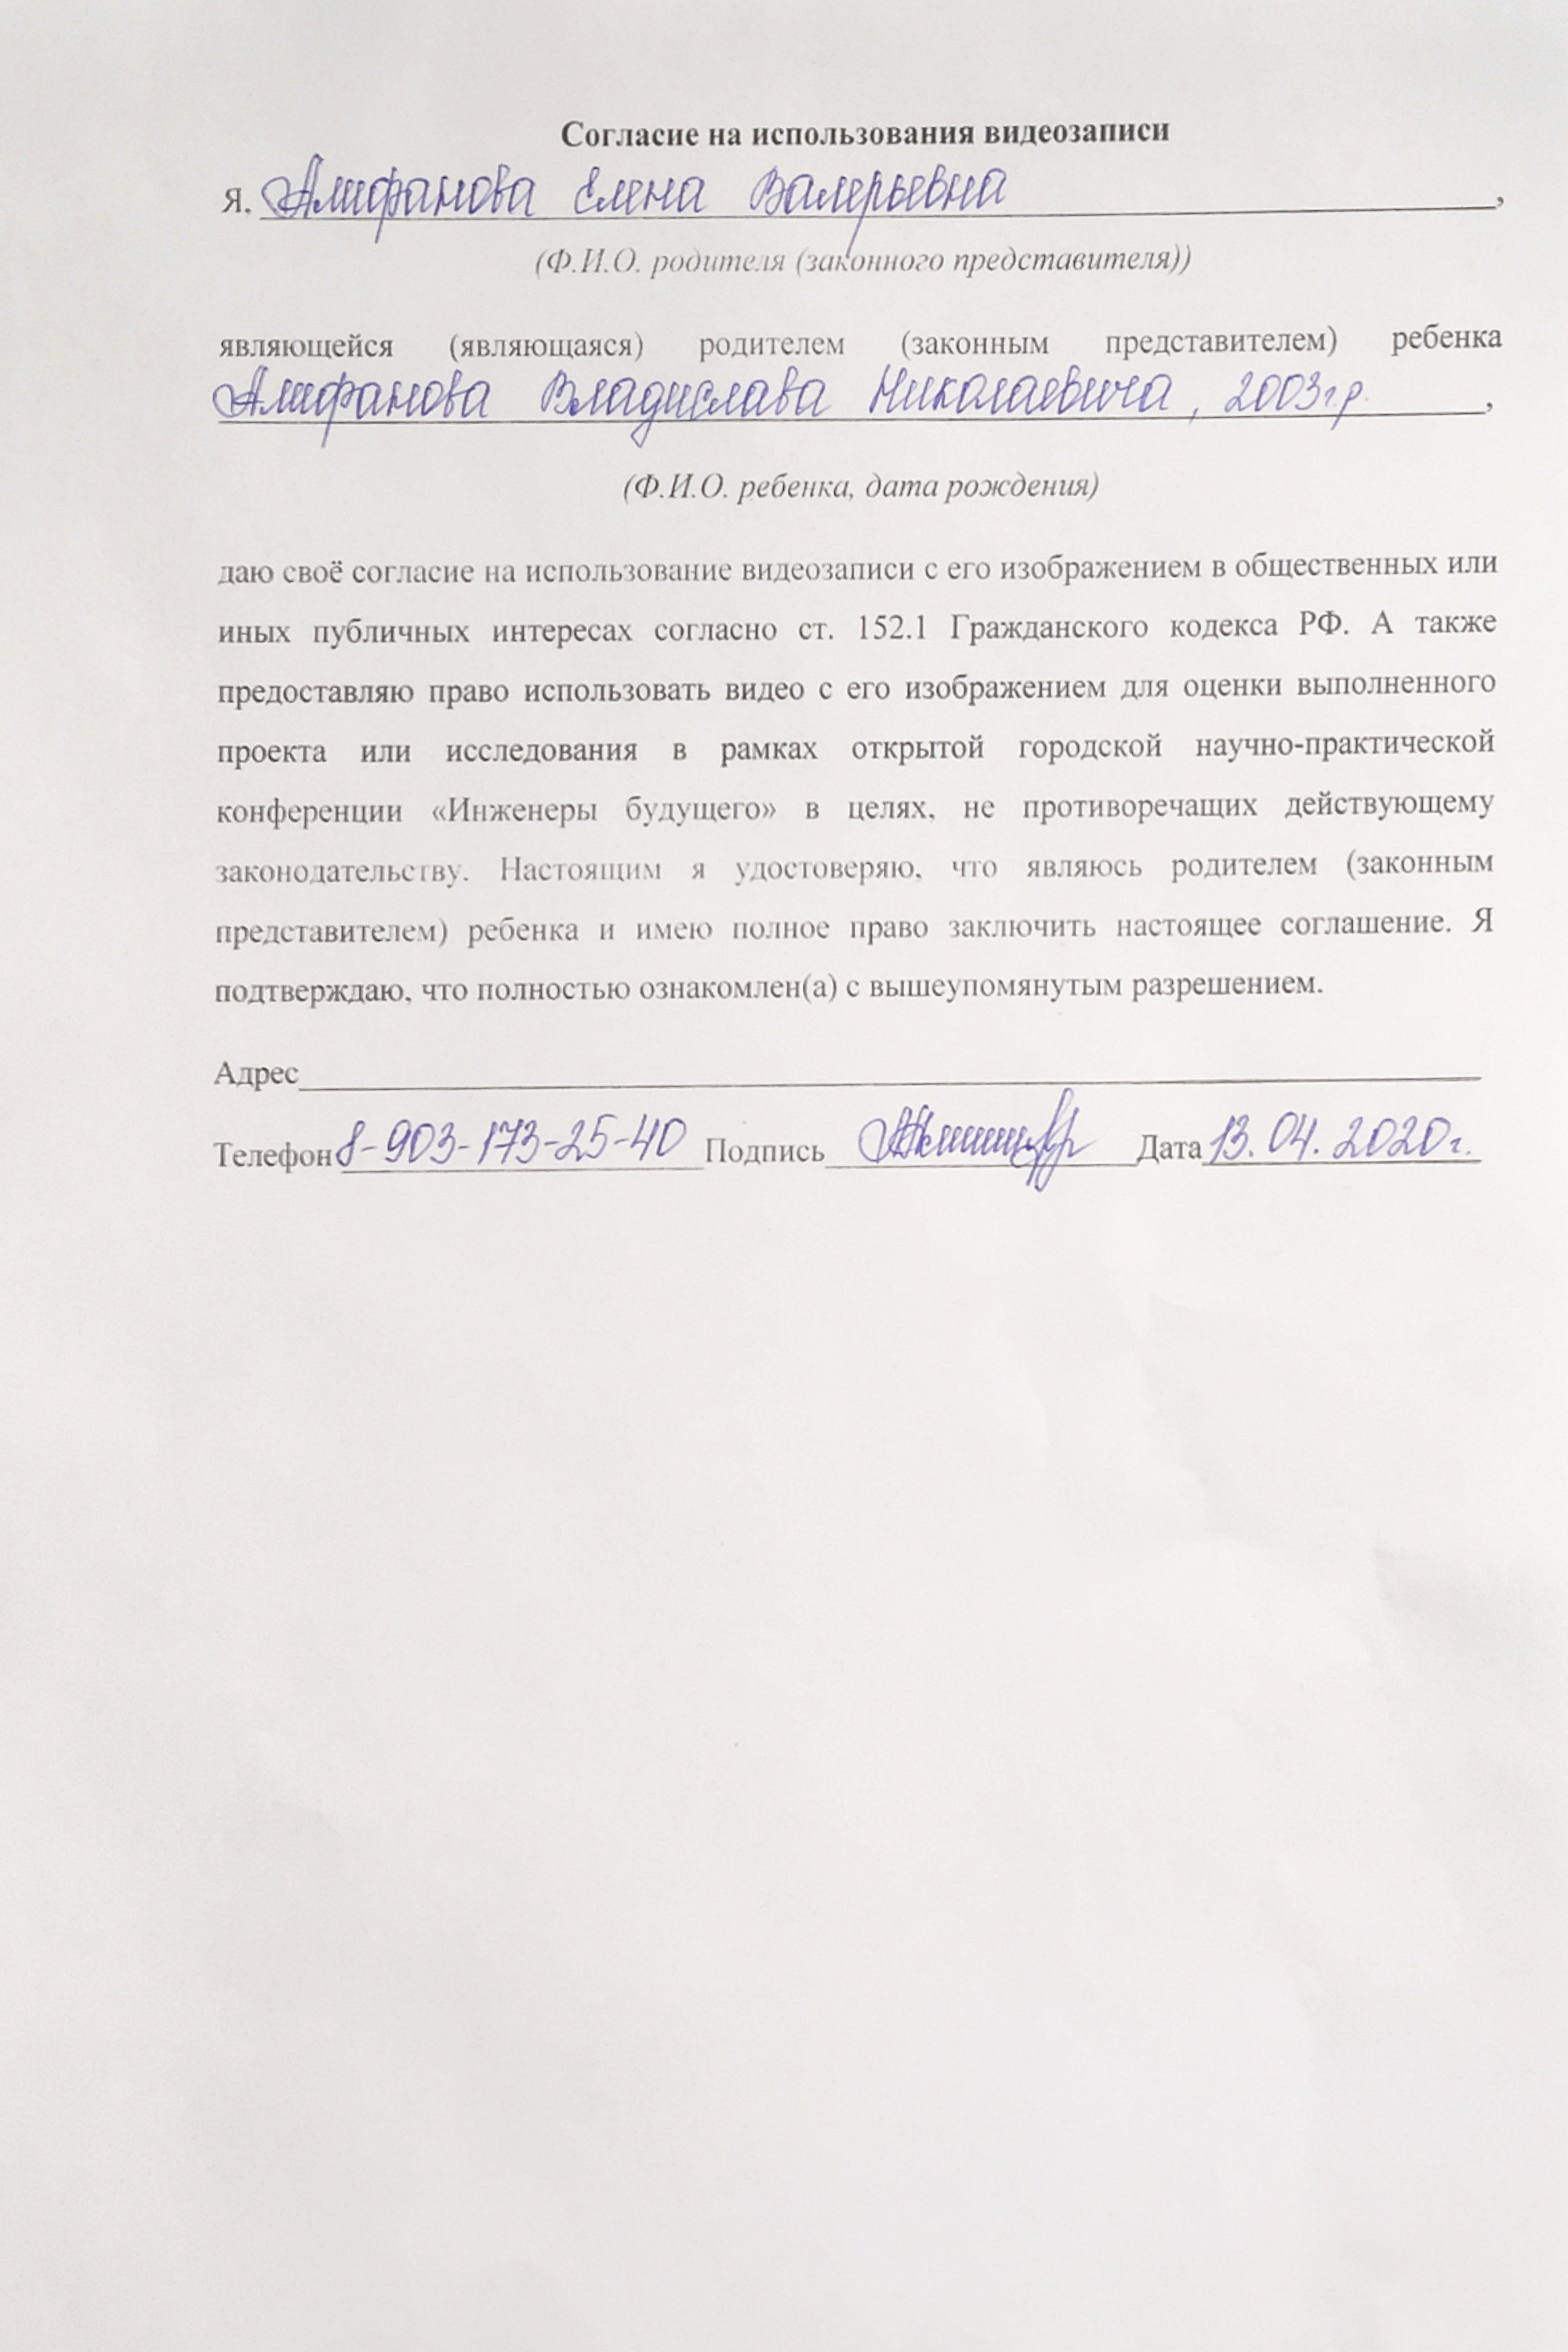 Согласие на использования видеозаписи
Я, Алифанова Елена Валерьевна,
(Ф.И.О. родителя (законного представителя))
являющейся (являющаяся) родителем (законным представителем) ребенка
Алифанова Владислава Николаевича, 2003г.р.,
(Ф.И.О. ребенка, дата рождения)
даю своё согласие на использование видеозаписи с его изображением в общественных или
иных публичных интересах согласно ст. 152.1 Гражданского кодекса РФ. А также
предоставляю право использовать видео с его изображением для оценки выполненного
проекта или исследования в рамках открытой городской научно-практической
конференции «Инженеры будущего» в целях, не противоречащих действующему
законодательству. Настоящим я удостоверяю, что являюсь родителем (законным
представителем) ребенка и имею полное право заключить настоящее соглашение. Я
подтверждаю, что полностью ознакомлен(а) с вышеупомянутым разрешением.
Адрес
Телефон 8-903-173-25-40 Подпись Дата 13.04.2020г.